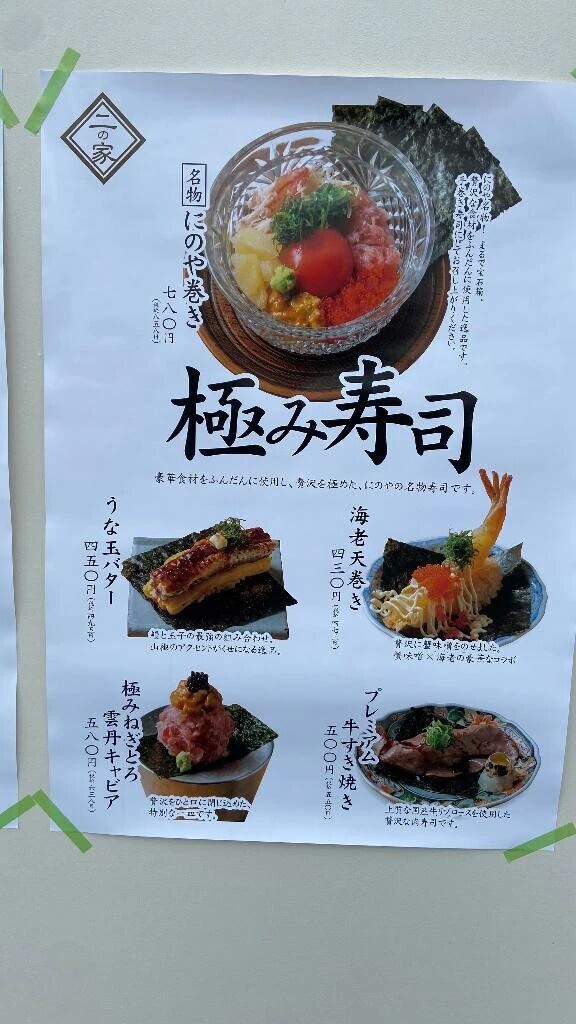 二の家
名物
にのや巻き
七八〇円
(税込八五八円)
にのや名物！まるで宝石箱。
贅沢な食材をふんだんに使用した逸品です。
手巻き寿司にしてお召し上がりください。
極み寿司
豪華食材をふんだんに使用し、贅沢を極めた、にのやの名物寿司です。
うな玉バター
四五〇円(税込四九五円)
鰻と玉子の最強の組み合わせ。
山椒のアクセントがくせになる逸品。
海老天巻き
四三〇円(税込四七三円)
贅沢に蟹味噌をのせました。
蟹味噌×海老の豪華なコラボ
極みねぎとろ
雲丹キャビア
五八〇円(税込六三八円)
贅沢をひと口に閉じ込めた、
特別な一皿です。
プレミアム
牛すき焼き
五〇〇円(税込五五〇円)
上質な国産牛リブロースを使用した
贅沢な肉寿司です。